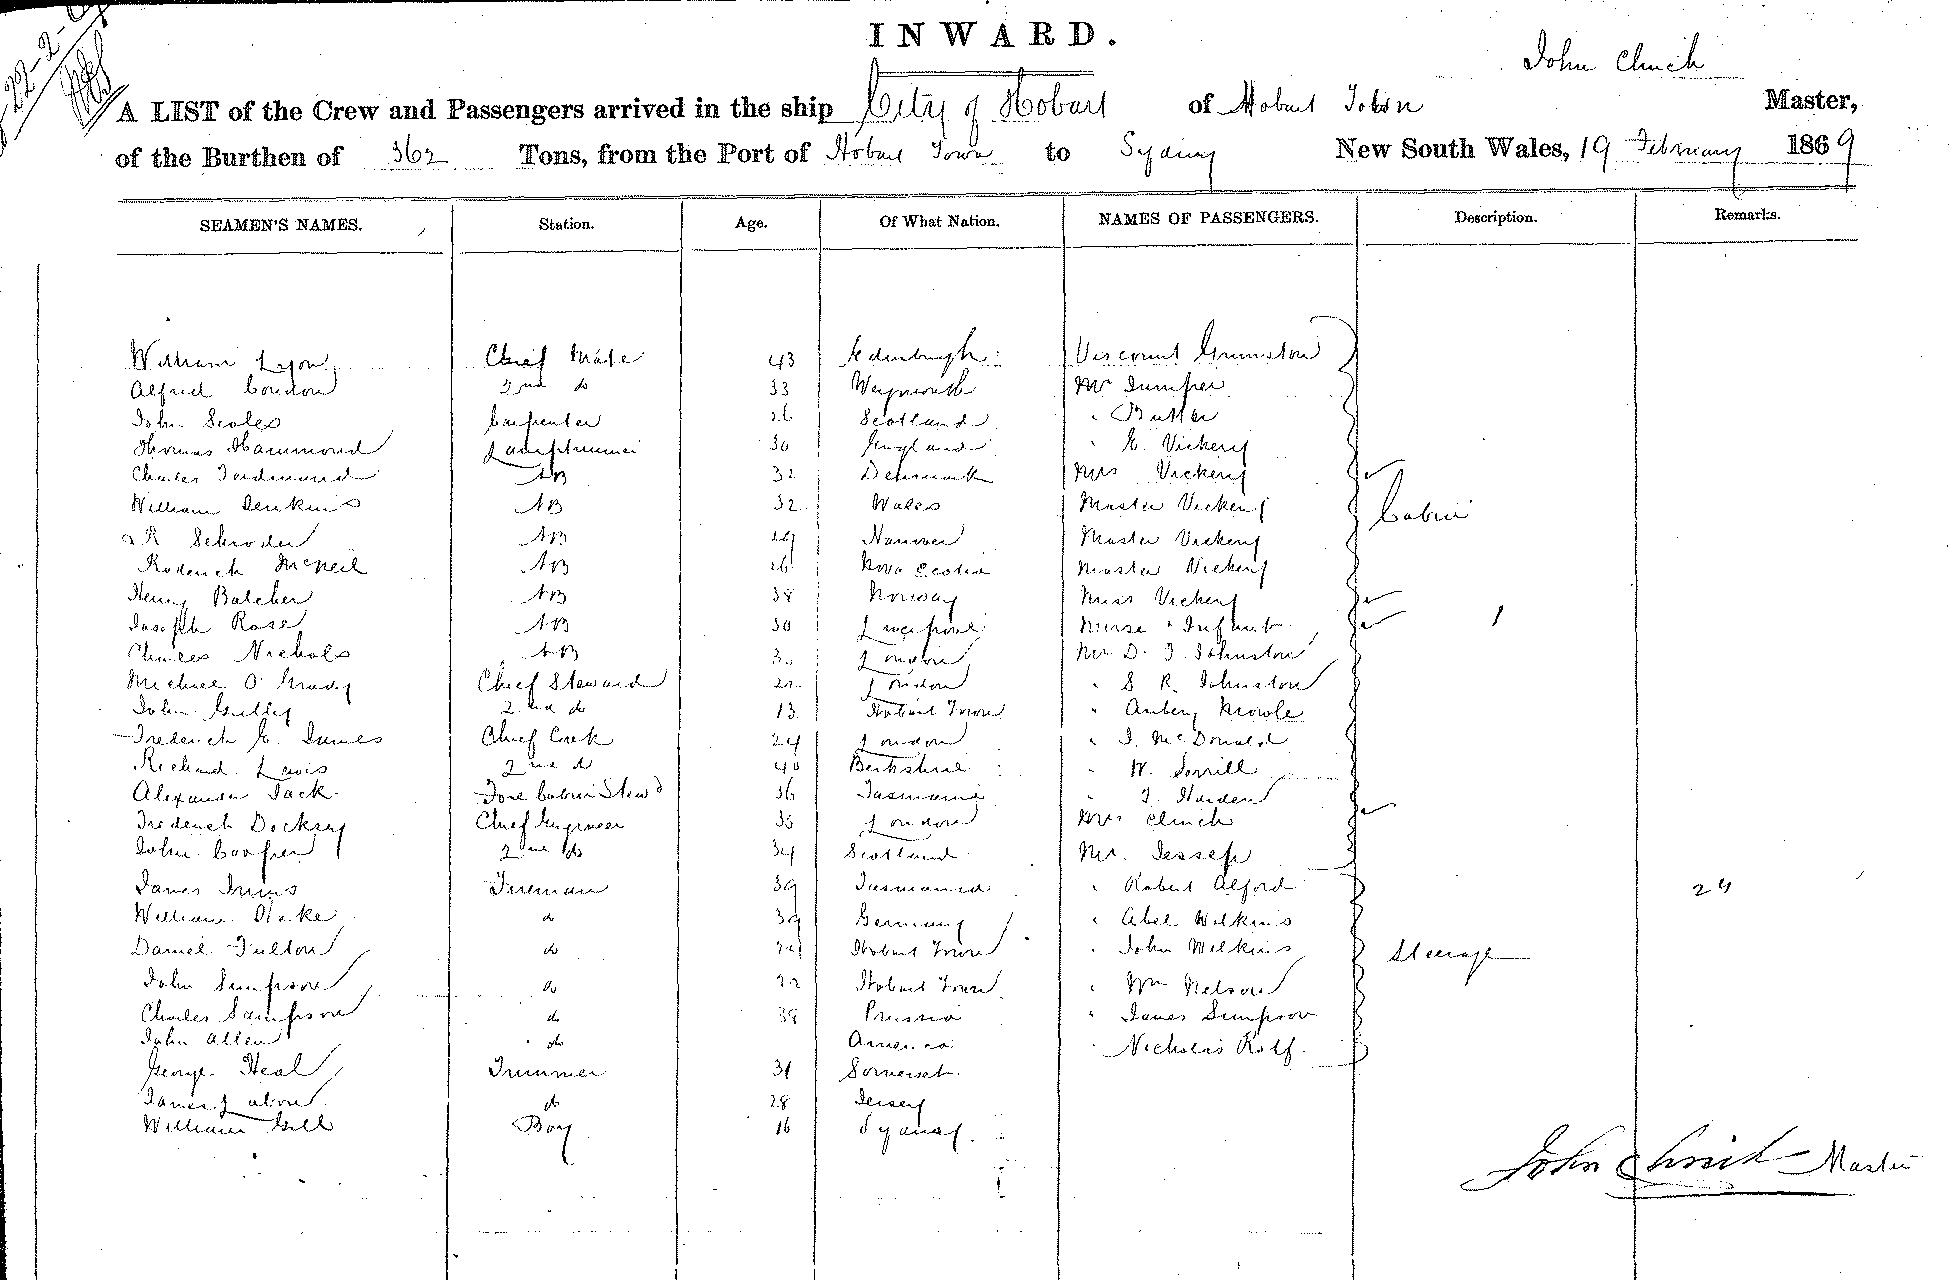 22-2-
INWARD.
John Clinch
A LIST of the Crew and Passengers arrived in the ship City of Hobart of Hobart Town Master,
of the Burthen of 362 Tons, from the Port of Hobart Town to Sydney New South Wales, 19 February 1869
SEAMEN'S NAMES. Station. Age. Of What Nation. NAMES OF PASSENGERS. Description. Remarks.
William Lyon Chief Mate 43 Edinburgh Viscount Grimston
Alfred Condon 2nd do 33 Weymouth Mr Jumper
John Scoles Carpenter 26 Scotland " Butler
Thomas Hammond Lamptrimmer 30 England " E. Vickery
Charles Ferdinand AB 32 Denmark Mrs Vickery
William Jenkins AB 32 Wales Master Vickery Cabin
R Schroder AB 29 Hanover Master Vickery
Roderick McNeil AB 26 Nova Scotia Master Vickery
Henry Batcher AB 38 Norway Miss Vickery
Joseph Rose AB 30 Liverpool Nurse & Infant 1
Charles Nichols AB London Mr D. J. Johnston
Michael O'Grady Chief Steward 22 London " S R. Johnston
John Gulley 2nd do 13 Hobart Town " Aubery Mowle
Frederick E. James Chief Cook 24 London " J. McDonald
Richard Lewis 2nd do 40 Berkshire " W. Sorrill
Alexander Jack Fore Cabin Stewd 36 Tasmania " T. Harden
Frederick Docksey Chief Engineer 35 London Mrs Clinch
John Cooper 2nd do 34 Scotland Mr. Jessep
James Innis Fireman 39 Tasmania " Robert Alford 24
William Hake do 39 Germany " Abel Wilkins
Daniel Fulton do 24 Hobart Town " John Wilkins Steerage
John Simpson do 22 Hobart Town " Wm Nelson
Charles Sampson do 38 Prussia " James Simpson
John Allen do America " Nicholas Rolf.
George Heal Trimmer 31 Somerset
James Laton do 28 Jersey
William Gill Boy 16 Sydney
John Clinch Master